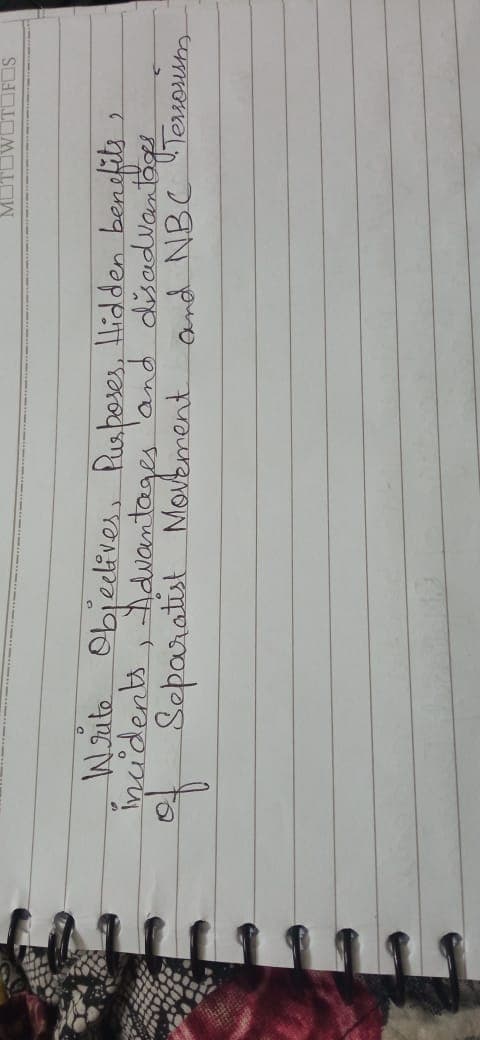 M T W T F S
Write Objectives, Purposes, Hidden benefits,
incidents, Advantages and disadvantages
of Separatist Movement and NBC Terrorism